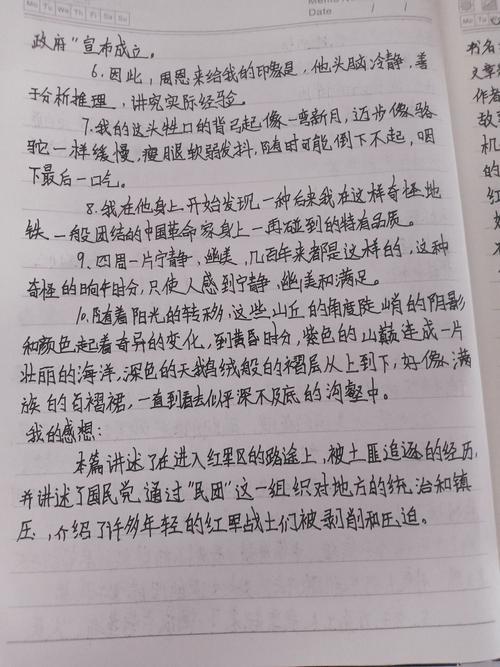 Mo Tu We Th Fr Sa Su
Memo No.
Date / /
政府"宣布成立。
6.因此,周恩来给我的印象是,他头脑冷静,善
于分析推理,讲究实际经验。
7.我的这头牲口的背弓起像一弯新月,迈步像骆
驼一样缓慢,瘦腿软弱发抖,随时可能倒下不起,咽
下最后一口气。
8.我在他身上开始发现一种后来我在这样奇怪地
铁一般团结的中国革命家身上一再碰到的特有品质。
9.四周一片宁静,幽美,几百年来都是这样的,这种
奇怪的晌午时分,只使人感到宁静,幽美和满足。
10.随着阳光的转移,这些山丘的角度陡峭的阴影
和颜色起着奇异的变化,到黄昏时分,紫色的山巅连成一片
壮丽的海洋,深色的天鹅绒般的褶层从上到下,好像满
族的百褶裙,一直到看去似乎深不及底的沟壑中。
我的感想:
本篇讲述了在进入红军区的路途上,被土匪追逐的经历,
并讲述了国民党通过"民团"这一组织对地方的统治和镇
压,介绍了许多年轻的红军战士们被剥削和压迫。
书名
文章
作者
敌
机
的
红